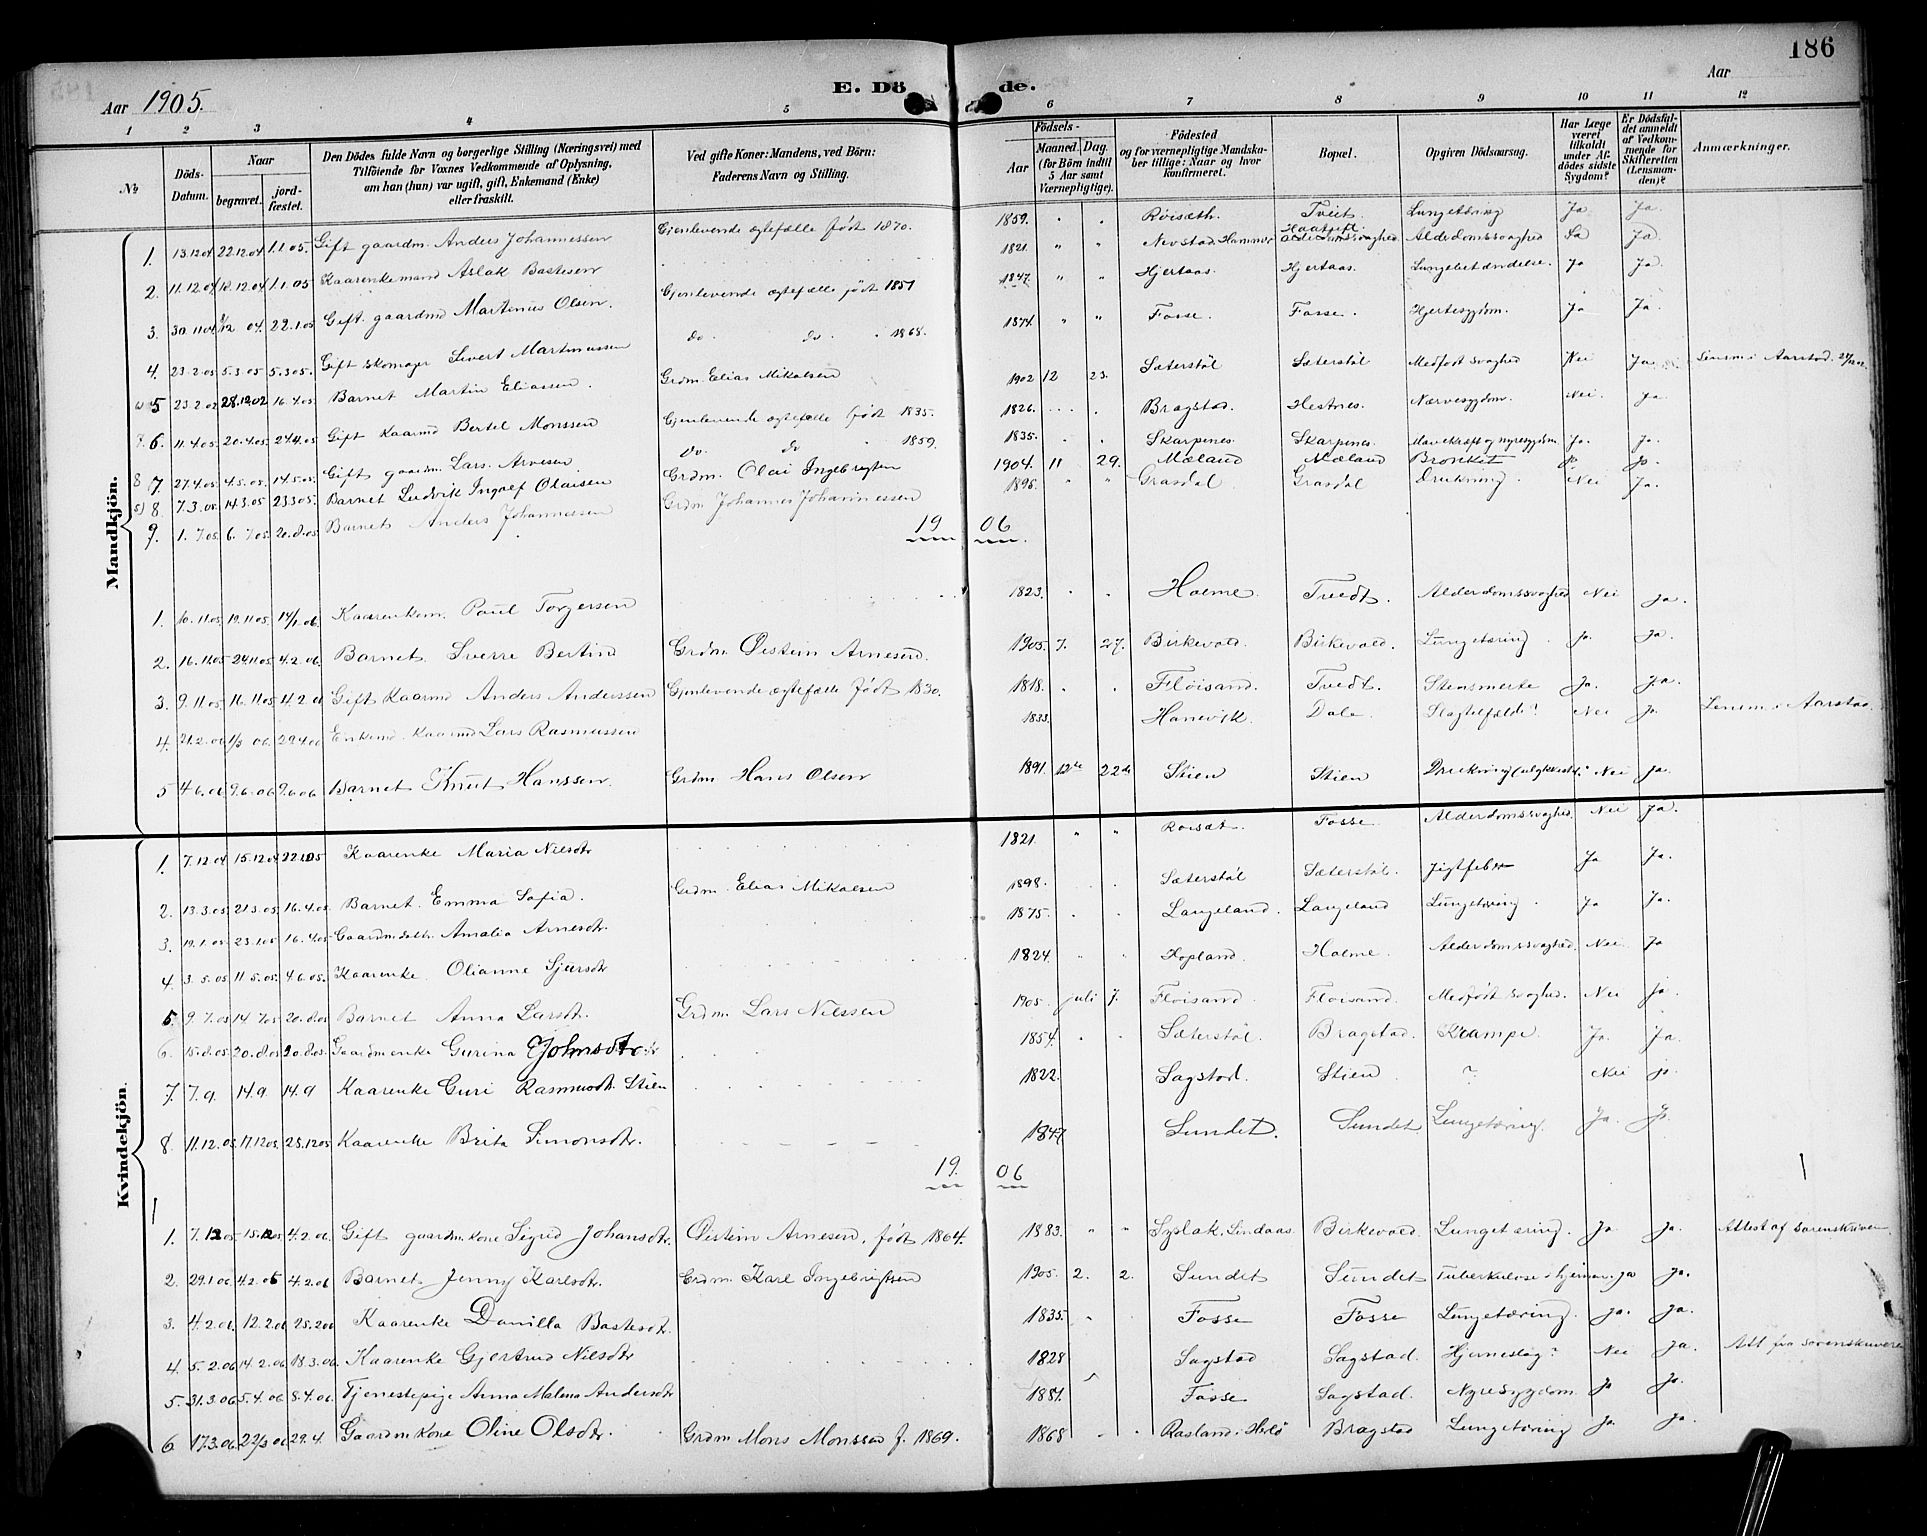 186
Aar 1905.
E. Dö de.
Aar
1 2 3 4 5 6 7 8 9 10 11 12
No
Döds-Datum.
Naar
begravet.
jord-fæstet.
Den Dödes fulde Navn og borgerlige Stilling (Næringsvei) med Tilföiende for Voxnes Vedkommende af Oplysning, om han (hun) var ugift, gift, Enkemand (Enke) eller fraskilt.
Ved gifte Koner: Mandens, ved Börn: Faderens Navn og Stilling.
Födsels-
Aar
Maaned. Dag.
(for Börn indtil 5 Aar samt Værnepligtige).
Födested og for værnepligtige Mandskaber tillige: Naar og hvor konfirmeret.
Bopæl.
Opgiven Dödsaarsag.
Har Læge været tilkaldt under Afdödes sidste Sygdom?
Er Dödsfaldet anmeldt af Vedkommende for Skifteretten (Lensmanden)?
Anmærkninger.
Mandkjön.
1. 13.12.04 22.12.04 1.1.05. Gift gaardm. Anders Johannessen Gjenlevende ægtefælle født 1870. 1859. Røisæth. Tveit Lungetæring Ja Ja.
2. 11.12.04 18.12.04 1.1.05 Kaarenkemand Aslak Bastesen 1821. " " Nevstad, Hammer Alderdomssvaghed Ja Ja
3. 30.11.04 22.1.05 Gift. gaardmd Martinus Olsen. Gjenlevende ægtefælle født 1851 1847. " " Hjertaas. Hjertaas. Lungebetændelse. Ja Ja
4. 23.2.05 5.3.05 5.3.05. Gift skomager Sivert Martinussen do. do. 1868. 1874. " " Fosse. Fosse. Hjertesygdom. Ja Ja.
5 23.2.02 28.12.02 16.4.05 Barnet Martin Eliassen. Grdm. Elias Mikalsen 1902 12 23. Sæterstøl Sæterstøl Medfødt svaghed Nei Ja Lensm. i Aarstad
6. 11.4.05 20.4.05 24.4.05 Gift Kaarmd Bertel Monssen Gjenlevende ægtefælle født 1835. 1826. Bragstad. Hestnes. Nervesygdom. Nei. Ja
7. 27.4.05 4.5.05 14.5.05 Gift gaardm. Lars Arnesen do. do 1859. 1835. Skarpenes. Skarpenes. Mavekræft og nyresygdom Ja. Ja.
8. 7.3.05 14.3.05 23.3.05 Barnet Ludvik Ingolf Olaisen Grdm. Olai Ingebrigtsen 1904. 11 29. Mæland Mæland Bronkit Ja. Ja.
9. 1.7.05 6.7.05 20.8.05 Barnet Anders Johannessen Grdm Johannes Johannessen 1895. " " Grasdal Grasdal Drukning. Nei Ja.
19 06
1. 10.11.05. 19.11.05. 14/1.06. Kaarenkem. Paul Torgersen 1823. Holme. Tvedt. Alderdomssvaghed Nei Ja.
2. 16.11.05 24.11.05 4.2.06. Barnet Sverre Bertin Grdm. Øistein Arnesen. 1905. 7. 27. Birkevold. Birkevold. Lungetæring. Ja. Ja.
3. 9.11.05 16.11.05 4.2.06 Gift Kaarmd Anders Anderssen Gjenlevende ægtefælle født 1830. 1818. Fløisand. Tvedt. Stensmerte Ja. Ja.
4. 21.2.06 1/3 06. 29.4.06 Enkemd. Kaarmd Lars Rasmussen 1833. Hanevik. Dale. Slagtilfælde? Nei Ja. Lensm. i Aarstad
5 4.6.06 9.6.06 9.6.06 Barnet Knut Hanssen. Grdm Hans Olsen 1891. 12te 22de Stien Stien Drukning Nei Ja.
Kvindekjön.
1. 7.12.04 15.12.04 22.1.05 Kaarenke Maria Nilsdtr 1821. " " Roisæt. Fosse Alderdomssvaghed. Nei Ja.
2. 13.3.05 21.3.05. 16.4.05 Barnet. Emma Sofia. Grdm. Elias Mikalsen 1898. Sæterstøl Sæterstøl. Jigtfeber Ja Ja.
3. 19.1.05 23.1.05 16.4.05 Gaardm.dattr. Amalia Arnesdtr. 1875. Langeland. Langeland Lungetæring. Ja Ja.
4. 3.5.05 11.5.05. 4.6.05. Kaarenke Olianne Sjursdtr 1824. Kopland. Holme. Alderdomssvaghed. Nei Ja
5. 9.7.05 14.7.05 20.8.05 Barnet Anna Larsdtr. Grdm. Lars Nilssen 1905. juli 7. Fløisand. Fløisand. Medfødt svaghed. Nei Ja.
6. 15.8.05 20.8.05 20.8.05. Gaardmenke Gurina Johnsdtr 1854. Sæterstøl. Bragstad. Krampe. Ja. Ja.
7. 7.9. 14.9. 14.9 Kaarenke Guri Rasmusdtr Stien 1822. Sagstad. Stien ? Nei ja.
8. 11.12.05 17.12.05. 25.12.05 Kaarenke Brita Simonsdtr. 1847 Sundet. Sundet. Lungetæring. Ja. Ja.
19. 06
1. 7.12.05 15.12.05 4.2.06. Gift gaardm.kone Sigrid Johansdtr. Øistein Arnesen, født 1864. 1883. " " Syslak, Lindaas Birkevold. Lungetæring. Ja Ja. Attest af sorenskriveren
2. 29.1.06 4.2.06 4.2.06 Barnet Jenny Karlsdtr. Grdm. Karl Ingebrigtsen 1905. 2. 2. Sundet Sundet Tuberkulose i hjernen. ja Ja.
3. 4.2.06. 12.2.06 25.2.06 Kaarenke Danilla Bastesdtr. 1835. Fosse Fosse Lungetæring. Ja. Ja.
4. 5.2.06 14.2.06 18.3.06. Kaarenke Gjertrud Nilsdtr 1828 Sagstad Sagstad. Hjerneslag? Nei Ja. Att. fra sorenskriveren
5. 31.3.06 5.4.06 8.4.06. Tjenestepige Anna Malena Andersdtr 1881. Fosse Sagstad. Nyresygdom Ja Ja.
6. 17.3.06 22/3 06 29.4. Gaardmkone Oline Olsdtr. Grdm Mons Monssen f. 1869. 1868 Rasland i Herlø Bragstad Lungetæring Ja. Ja.